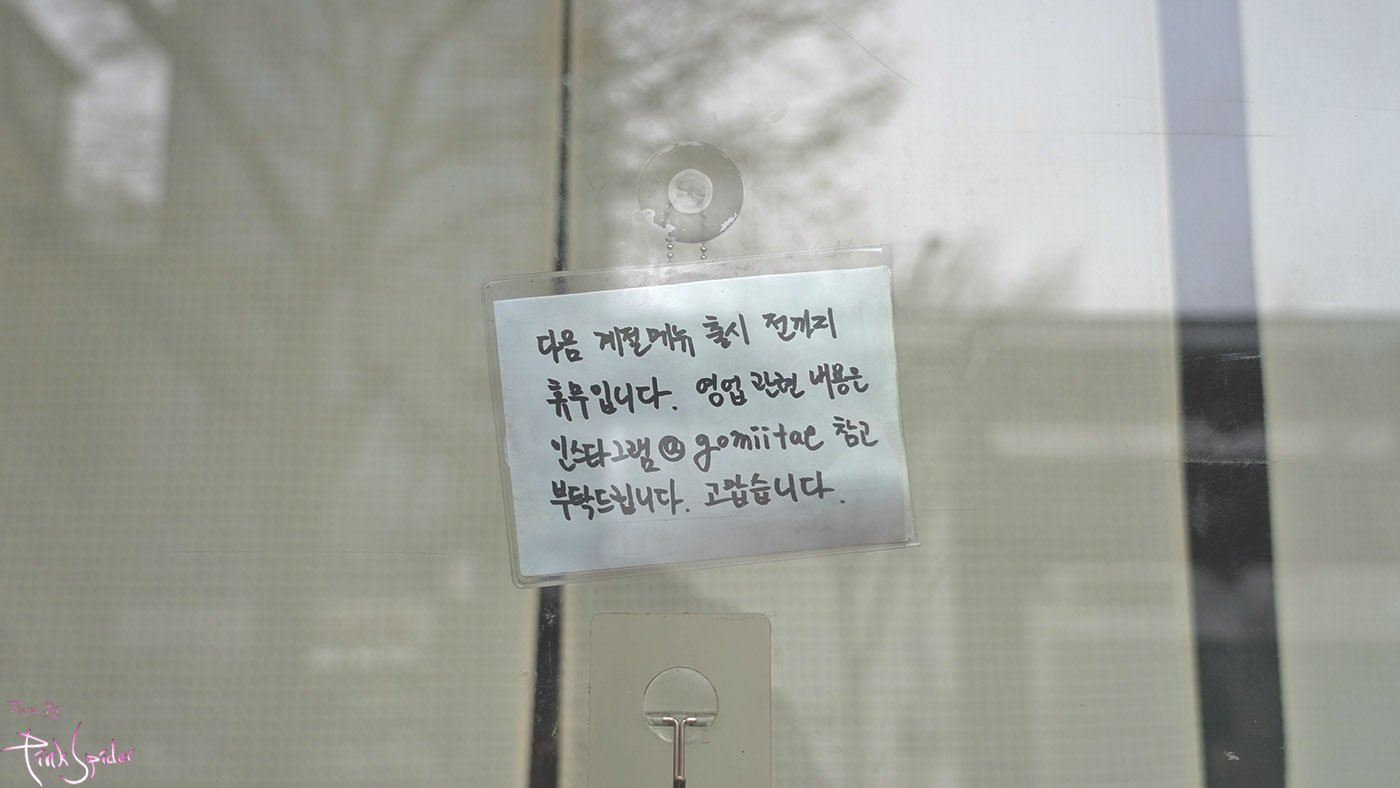 다음 계절메뉴 출시 전까지
휴무입니다. 영업 관현 내용은
인스타그램@gomiitae 참고
부탁드립니다. 고맙습니다.
Pink Spider